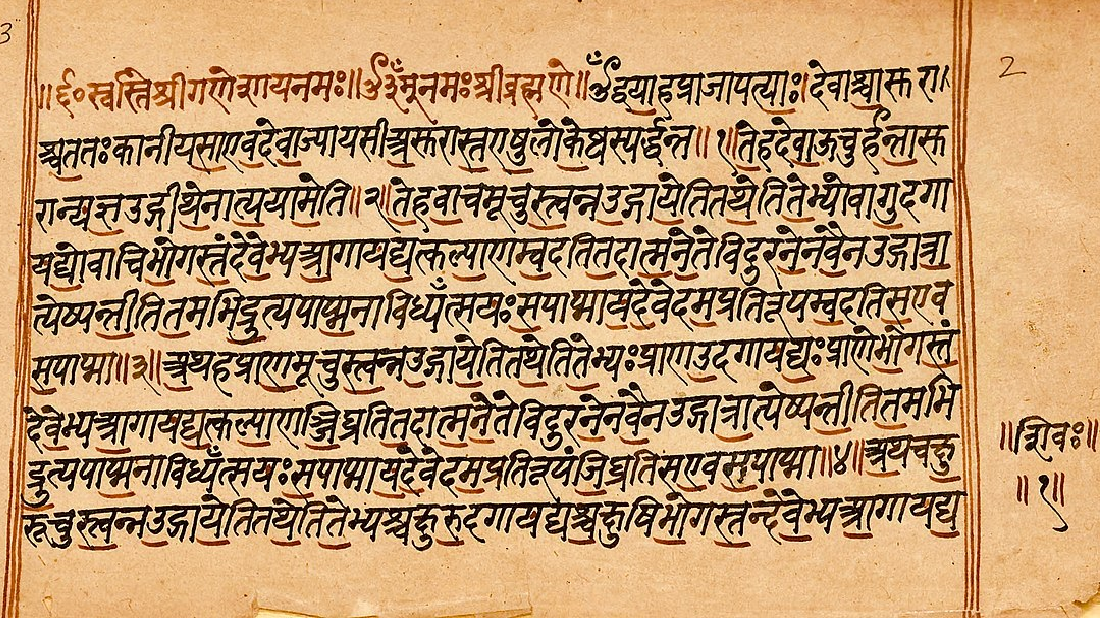 3
2
॥ र्द॰ स्वस्ति श्रीगणेशायनमः॥ ॐनमः श्रीब्रह्मणे॥ ॐ द्वयाहप्राजापत्याः। देवाश्चासुरा।
श्चततः कानीयसाएवदेवाज्यायसाअसुरास्तएषुलोकेष्वस्पर्द्धन्त॥ १॥ तेहदेवाऊचुर्हन्तासु
रान्यज्ञउद्गीथेनात्ययामेति॥ २॥ तेहवाचमूचुस्त्वन्नउद्गायेतितथेतितेभ्योवागुदगा
यद्योवाचिभोगस्तंदेवेभ्यआगायद्यत्कल्याणम्वदतितदात्मनेतेविदुरनेनवैनउद्गात्रा
त्येष्यन्तीतितमभिद्रुत्यपाप्मनाविध्यँत्सयःसपाप्मायदेवेदमप्रतिरूपम्वदतिसएव
सपाप्मा॥ ३॥ अथहप्राणमूचुस्त्वन्नउद्गायेतितथेतितेभ्यःप्राणउदगायद्यःप्राणेभोगस्तं
देवेभ्यआगायद्यत्कल्याणञ्जिघ्रतितदात्मनेतेविदुरनेनवैनउद्गात्रात्येष्यन्तीतितमभि
द्रुत्यपाप्मनाविध्यँत्सयःसपाप्मायदेवेदमप्रतिरूपंजिघ्रतिसएवसपाप्मा॥ ४॥ अथचक्षु
रूचुस्त्वन्नउद्गायेतितथेतितेभ्यश्चक्षुरुदगायद्यश्चक्षुषिभोगस्तन्देवेभ्यआगायद्य
॥शिवः॥
॥१॥